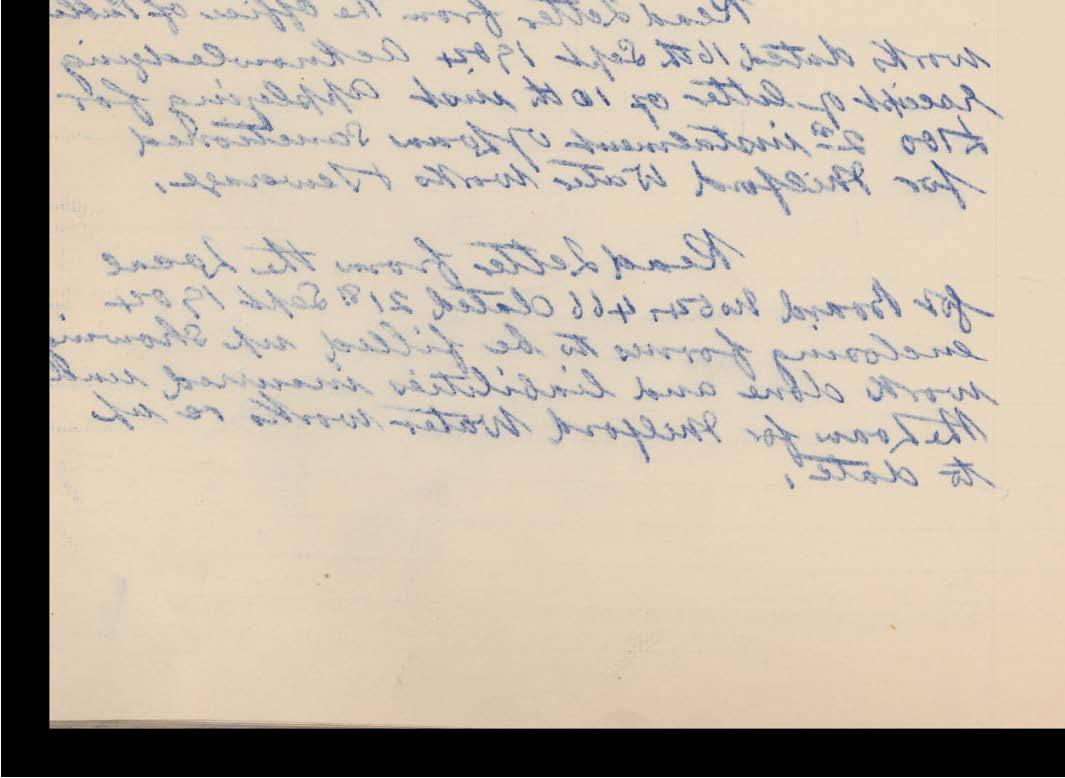 Read Letter from the Office of Public
Works dated 16th Sept 1904 acknowledging
receipt of letter of 10th inst applying for
£700 2nd instalment of Loan Sanctioned
for Milford Water Works & Sewerage.
Read Letter from the Local
Gov Board 466 dated 21st Sept 1904
enclosing forms to be filled up showing
work done and liabilities incurred under
the Loan for Milford Water works re up
to date.